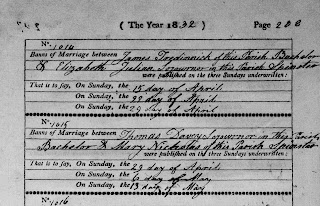 ( The Year 1832 ) Page 208
No. 1014
Banns of Marriage between James Tregdinnick of this Parish Bachelor
& Elizabeth Julian Sojourner in this Parish Spinster
were published on the three Sundays underwritten:
That is to say, On Sunday, the 15 day of April
On Sunday, the 22 day of April
On Sunday, the 29 day of April
No. 1015
Banns of Marriage between Thomas Davy Sojourner in this Parish
Bachelor & Mary Nicholas of this Parish Spinster
were published on the three Sundays underwritten:
That is to say, On Sunday, the 29 day of April
On Sunday, the 6 day of May
On Sunday, the 13 day of May
No. 1016